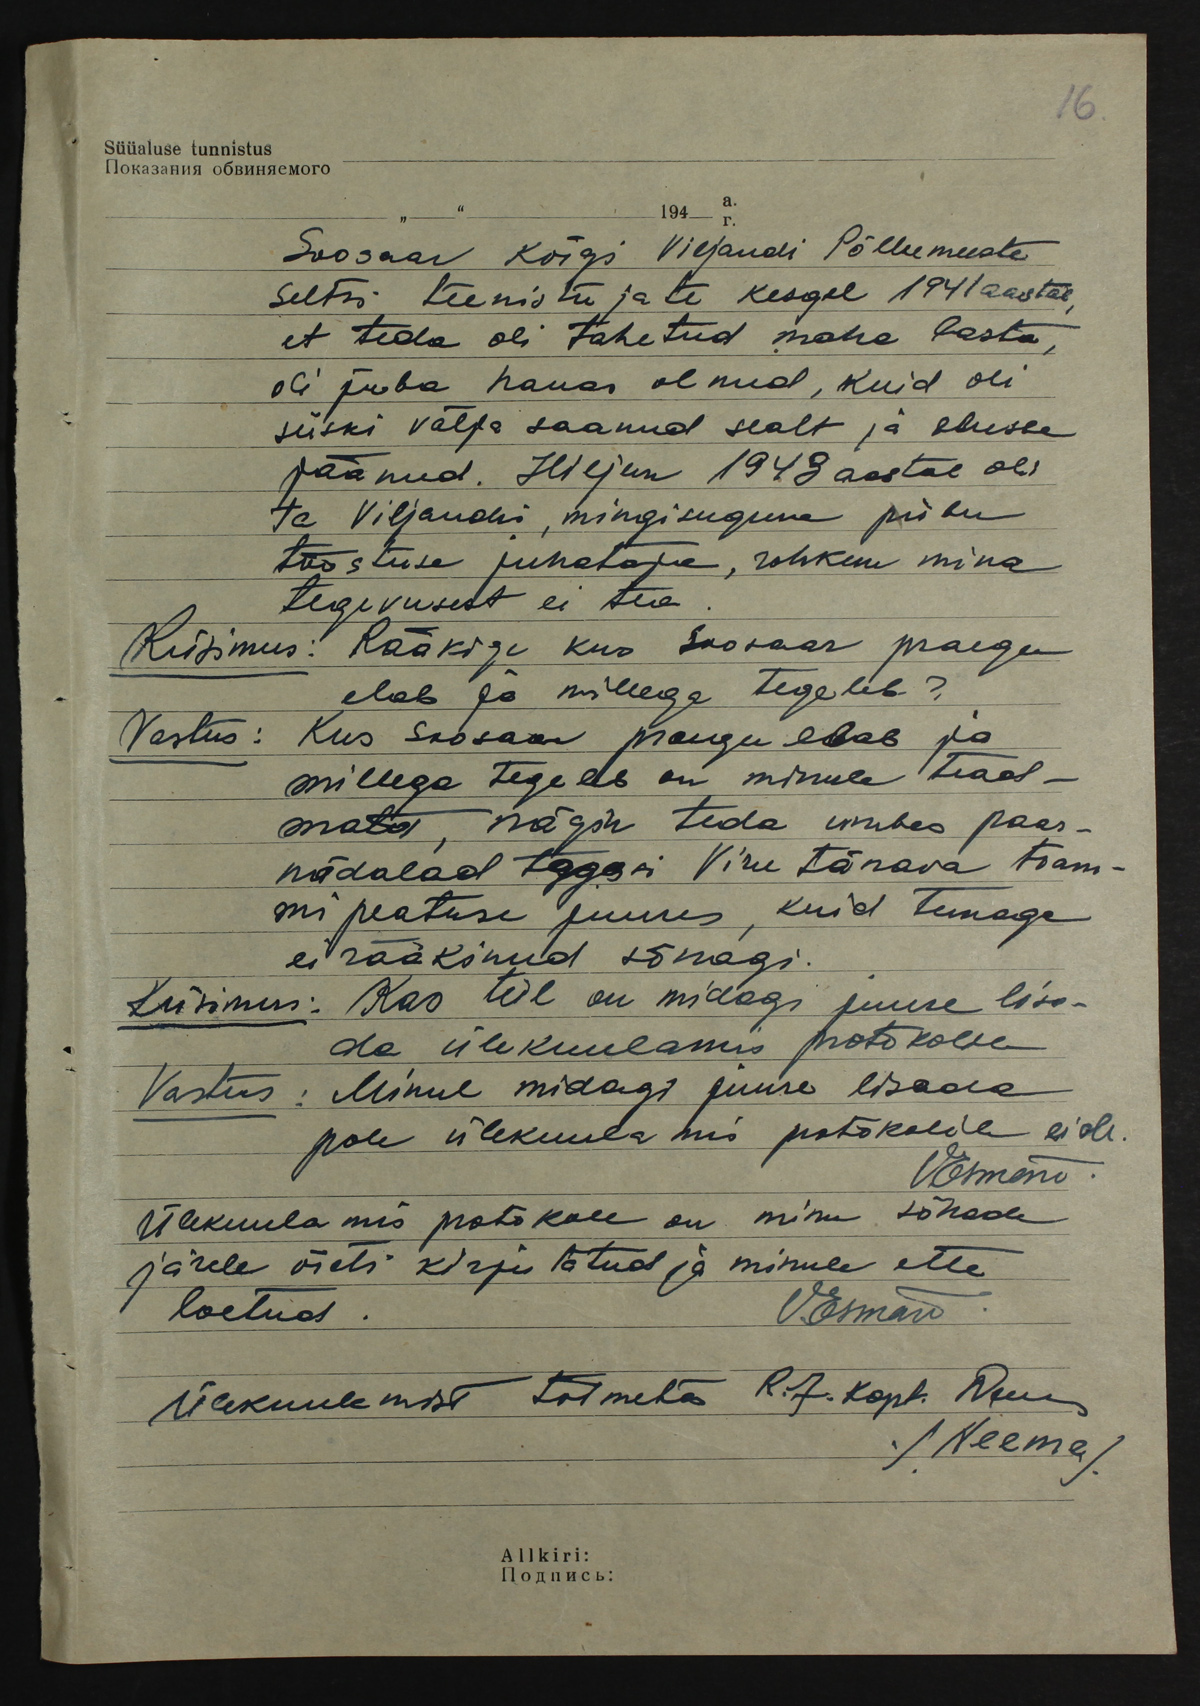 16.
Süüaluse tunnistus
Показания обвиняемого
„ “ 194 а.
г.
Soosaar kõigi Viljandi Põllumeeste
Seltsi teenistujate kesgel 1941 aastal,
et teda oli tahetud maha lasta,
oli juba hauas olnud, kuid oli
siiski välja saanud sealt ja ellusse
jäänud. Hiljem 1943 aastal oli
ta Viljandis, mingisuguse piibu
tööstuse juhataja, rohkem mina
tegevusest ei tea.
Küsimus: Rääkige kus Soosaar praegu
elab ja millega tegeleb?
Vastus: Kus Soosaar praegu elab ja
millega tegeleb on minule tead-
mata, nägin teda umbes paar-
nädalad tagasi Viru tänava tram-
mi peatuse juures, kuid temaga
ei rääkinud sõnagi.
Küsimus: Kas teil on midagi juure lisa-
da ülekuulamis protokolle
Vastus: Minul midagi juure lisada
pole ülekuulamis protokolile ei ole.
VEsmann.
Ülekuulamis protokoll on minu sõnade
järele õieti kirjutatud ja minule ette
loetud. VEsmann.
Ülekuulamist toimetas R.J. kapt.
/Neema/.
Allkiri:
Подпись: